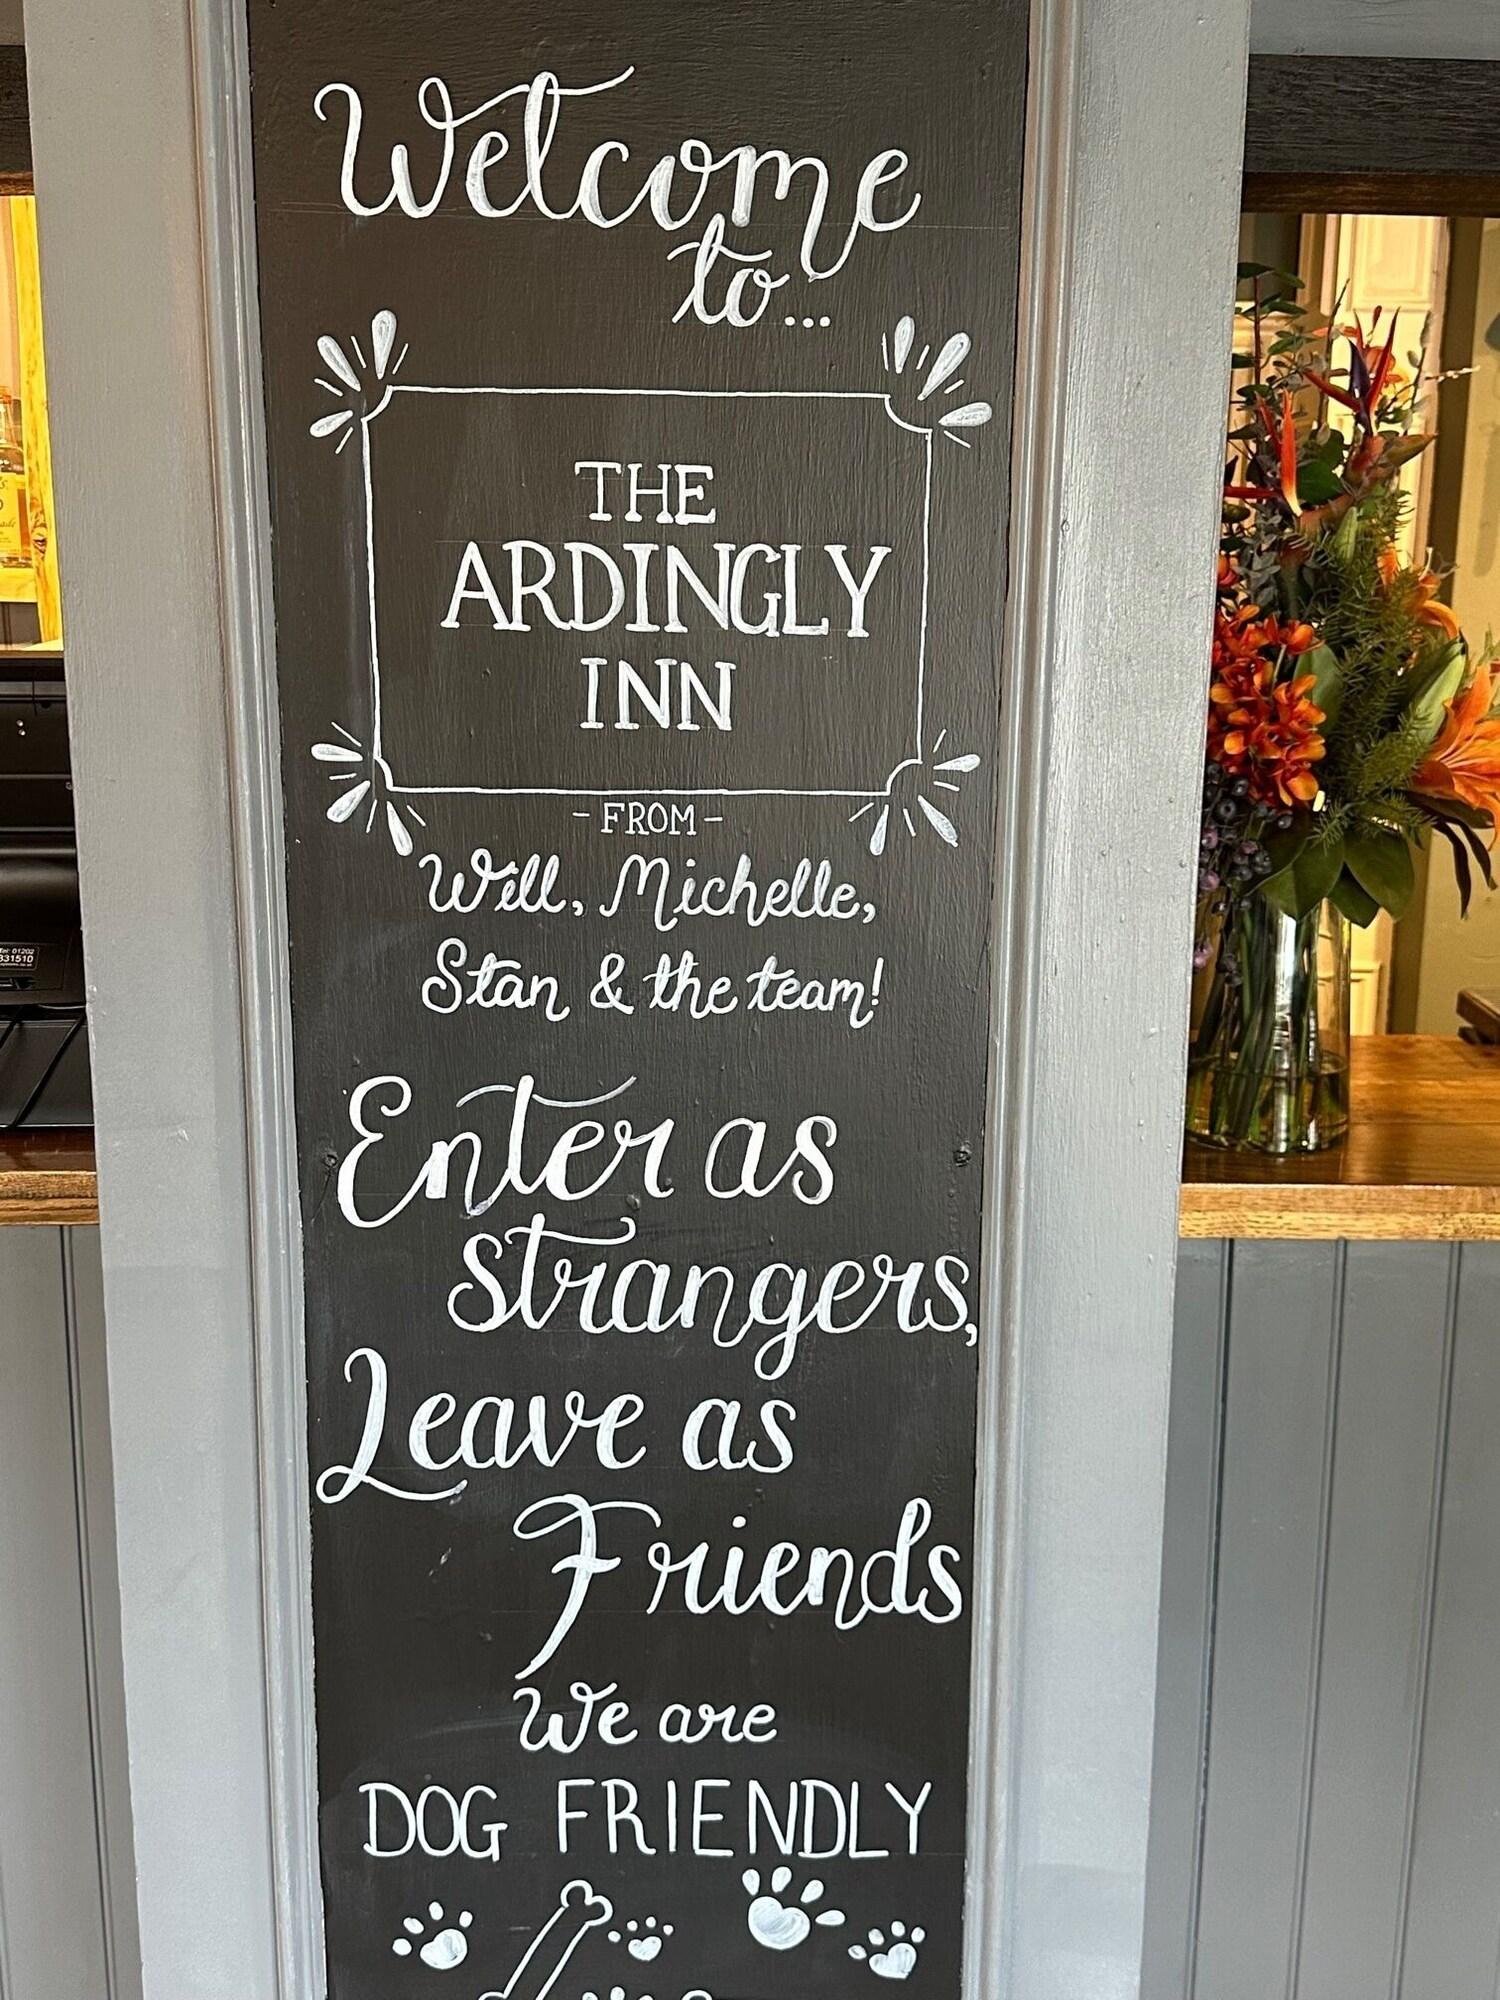 Welcome
to...
THE
ARDINGLY
INN
- FROM -
Will, Michelle,
Stan & the team!
Enter as
strangers,
Leave as
Friends
We are
DOG FRIENDLY
Tel: 01202
331510